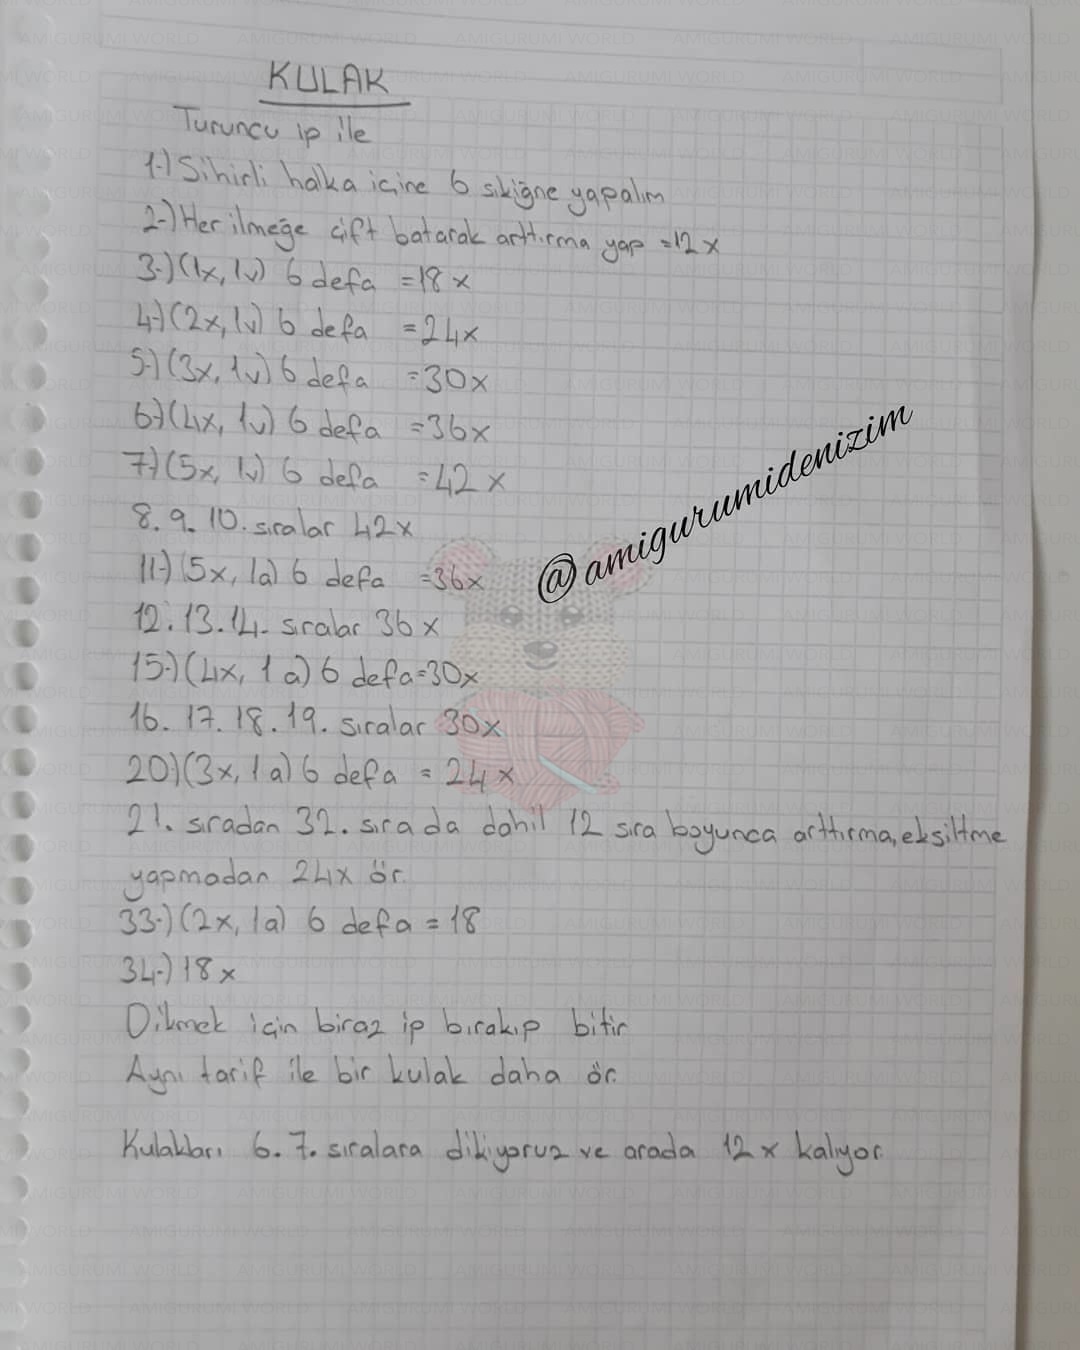 KULAK
Turuncu ip ile
1-) Sihirli halka içine 6 sıkiğne yapalım
2-) Her ilmeğe çift batarak arttırma yap =12x
3-) (1x, 1v) 6 defa =18x
4-) (2x, 1v) 6 defa =24x
5-) (3x, 1v) 6 defa =30x
6-) (4x, 1v) 6 defa =36x
7-) (5x, 1v) 6 defa =42x
8. 9. 10. sıralar 42x
11-) (5x, 1a) 6 defa =36x
@amigurumidenizim
12. 13. 14. sıralar 36x
15-) (4x, 1a) 6 defa=30x
16. 17. 18. 19. sıralar 30x
20-) (3x, 1a) 6 defa = 24x
21. sıradan 32. sıra da dahil 12 sıra boyunca arttırma, eksiltme
yapmadan 24x ör.
33-) (2x, 1a) 6 defa = 18
34-) 18x
Dikmek için biraz ip bırakıp bitir
Aynı tarif ile bir kulak daha ör.
Kulakları 6. 7. sıralara dikiyoruz ve arada 12x kalıyor.
AMIGURUMI WORLD